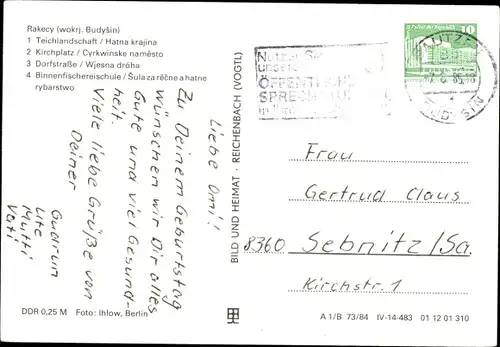 Rakecy (wokrj. Budyšin)
1 Teichlandschaft / Hatna krajina
2 Kirchplatz / Cyrkwinske naměsto
3 Dorfstraße / Wjesna dróha
4 Binnenfischereischule / Šula za rěčne a hatne
rybarstwo
Liebe Omi!
Zu Deinem Geburtstag
wünschen wir Dir alles
Gute und viel Gesund-
heit.
Viele liebe Grüße von
Deiner
Gudrun
Ute
Mutti
Vati
DDR 0,25 M Foto: Ihlow, Berlin
BILD UND HEIMAT · REICHENBACH (VOGTL)
10
BAUTZEN
BUDYŠIN
Nutzen Sie
unsere
ÖFFENTLICHE
Frau
Gertrud Claus
8360 Sebnitz/Sa.
Kirchstr. 1
A 1/B 73/84 IV-14-483 01 12 01 310